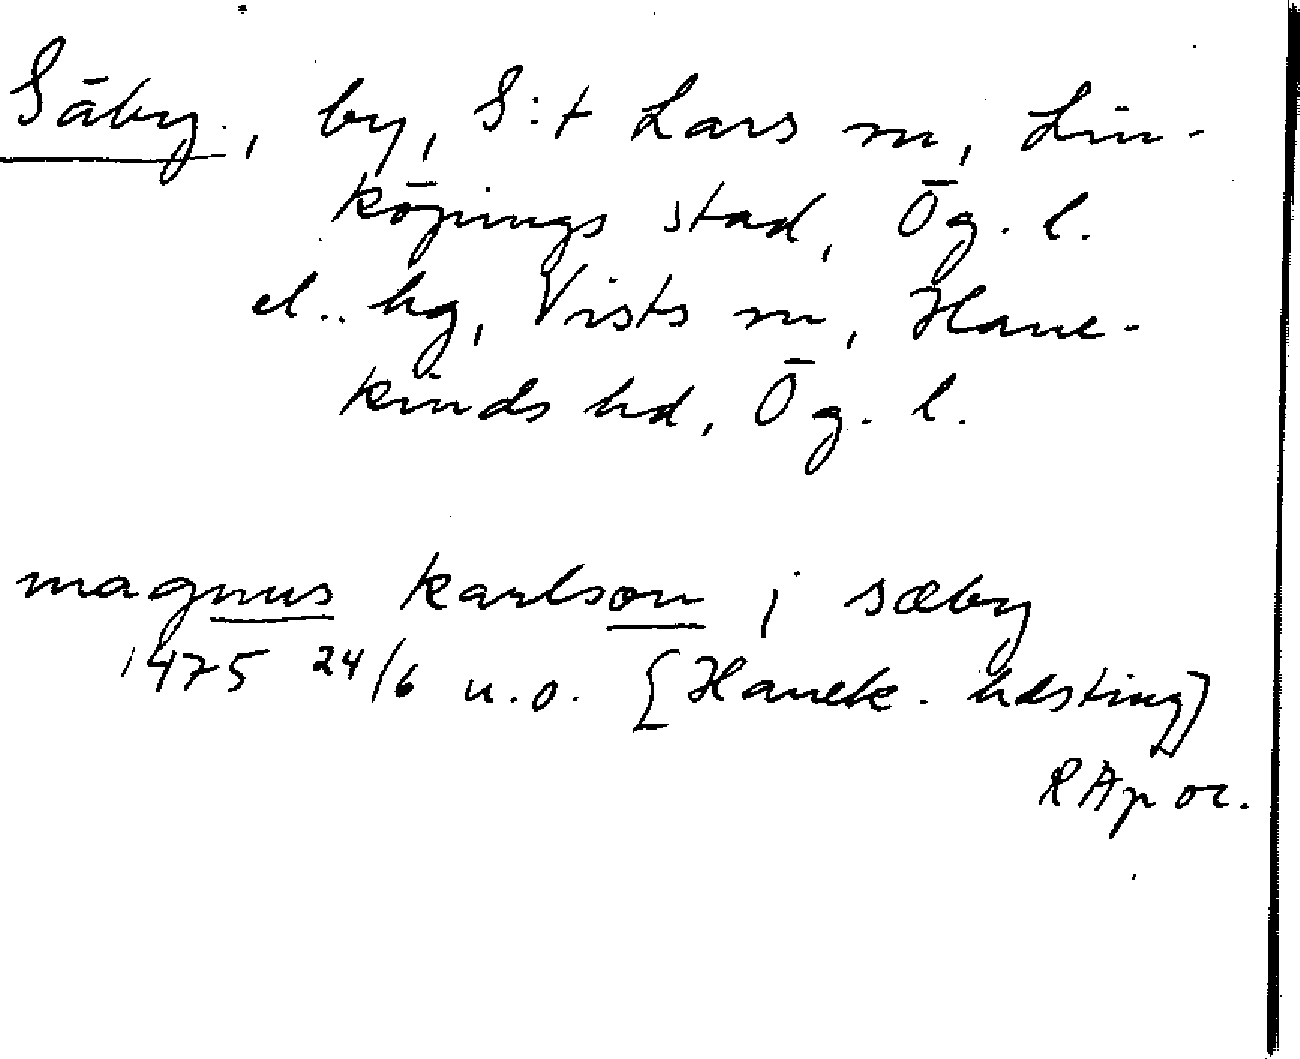 Säby, by, S:t Lars sn, Lin-
köpings stad, Ög. l.
el. hg, Vists sn, Hane-
kinds hd, Ög. l.
magnus karlson i sæby
1475 24/6 u.o. [Hanek. hdsting]
RAp or.